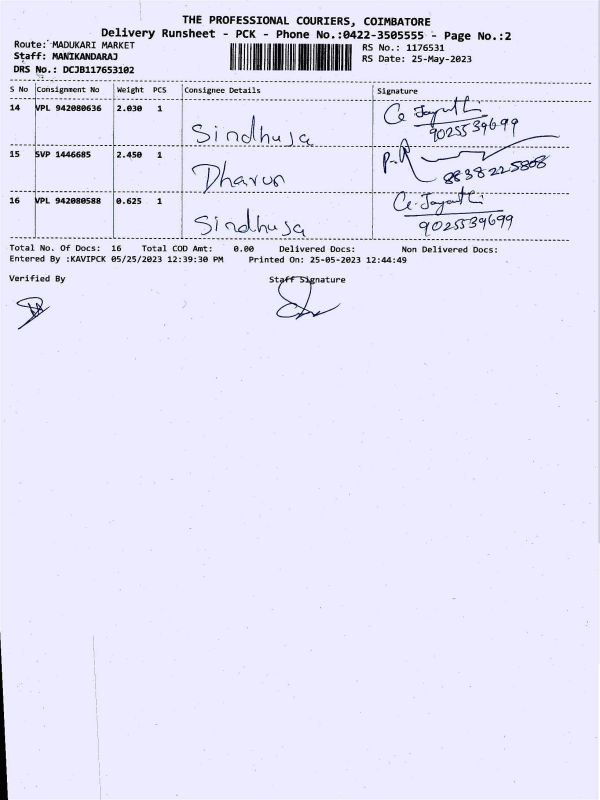 THE PROFESSIONAL COURIERS, COIMBATORE
Delivery Runsheet - PCK - Phone No.:0422-3505555 - Page No.:2
Route: MADUKARI MARKET
RS No.: 1176531
Staff: MANIKANDARAJ
RS Date: 25-May-2023
DRS No.: DCJB117653102
S No Consignment No Weight PCS Consignee Details Signature
14 VPL 942080636 2.030 1 Sindhuja
9025539699
15 SVP 1446685 2.450 1 Dharun
8838225808
16 VPL 942080588 0.625 1 Sindhuja
9025539699
Total No. Of Docs: 16 Total COD Amt: 0.00 Delivered Docs: Non Delivered Docs:
Entered By :KAVIPCK 05/25/2023 12:39:30 PM Printed On: 25-05-2023 12:44:49
Verified By Staff Signature